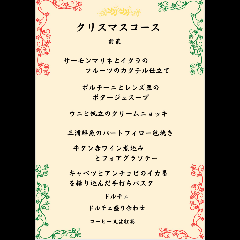 クリスマスコース
前菜
サーモンマリネとイクラの
フルーツのカクテル仕立て
ポルチーニとレンズ豆の
ポタージュスープ
ウニと帆立のクリームニョッキ
三浦鮮魚のパートフィロー包焼き
牛タン赤ワイン煮込み
とフォアグラソテー
キャベツとアンチョビのイカ墨
を練り込んだ手打ちパスタ
ドルチェ
ドルチェ盛り合わせ
コーヒー又は紅茶